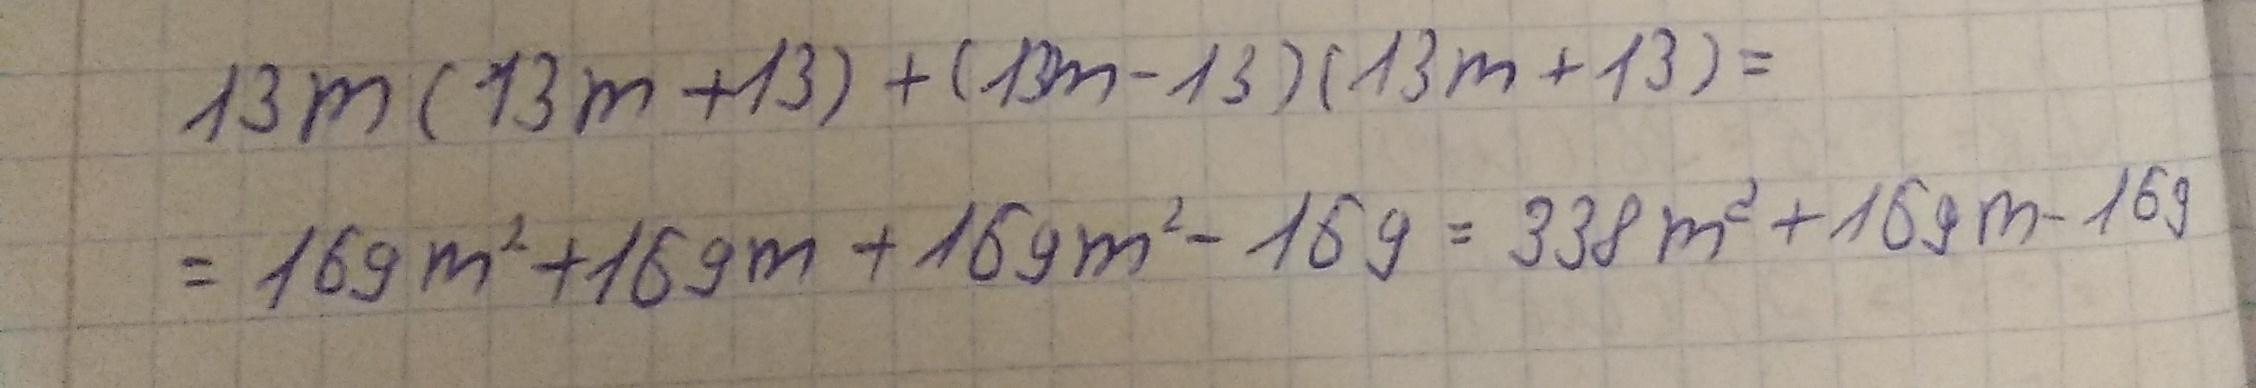 13m(13m+13)+(13m-13)(13m+13)=
=169m²+169m+169m²-169=338m²+169m-169